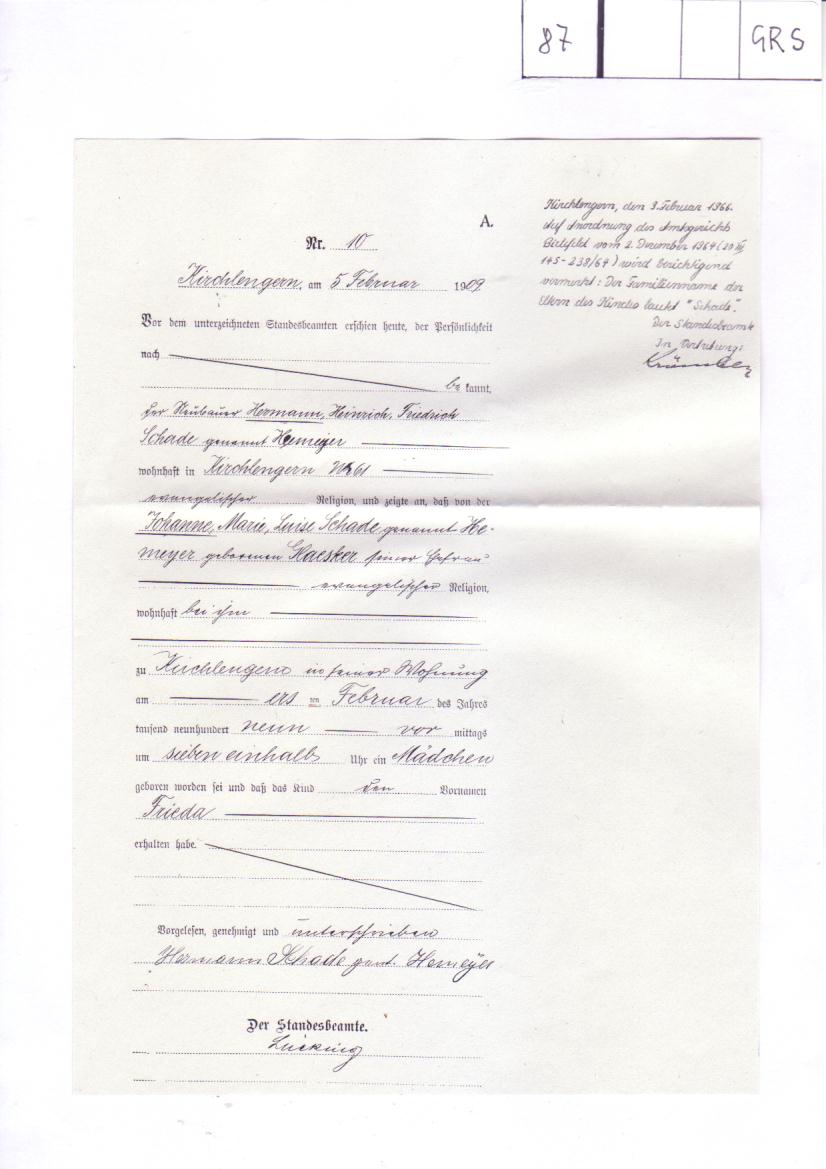 87 GRS
A.
Nr. 10
Kirchlengern, am 5 Februar 1909
Vor dem unterzeichneten Standesbeamten erschien heute, der Persönlichkeit
nach
be kannt,
der Neubauer Hermann, Heinrich, Friedrich
Schade genannt Hemeyer
wohnhaft in Kirchlengern No 61
evangelischer Religion, und zeigte an, daß von der
Johanne, Marie, Luise Schade genannt He-
meyer geborenen Haesker seiner Ehefrau
evangelischer Religion,
wohnhaft bei ihm
zu Kirchlengern in seiner Wohnung
am ers ten Februar des Jahres
tausend neunhundert neun vor mittags
um sieben einhalb Uhr ein Mädchen
geboren worden sei und daß das Kind den Vornamen
Frieda
erhalten habe.
Vorgelesen, genehmigt und unterschrieben
Hermann Schade gnt. Hemeyer
Der Standesbeamte.
Lücking
Kirchlengern, den 9. Februar 1966.
Auf Anordnung des Amtsgerichts
Bielefeld vom 2. Dezember 1964 (20 III
145-238/64) wird berichtigend
vermerkt: Der Familienname der
Eltern des Kindes lautet "Schade".
Der Standesbeamte
In Vertretung: